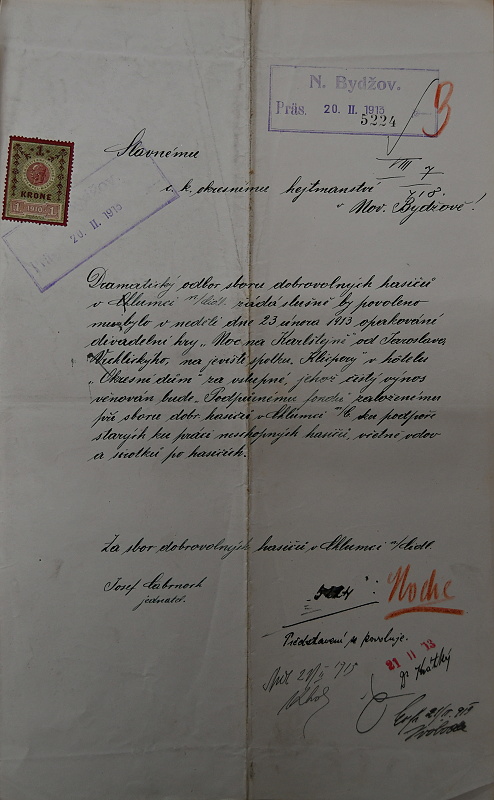 N. Bydžov.
Präs. 20. II. 1913
5224
Slavnému
c. k. okresnému hejtmanství
v Nov. Bydžově!
VIII 7
718.
1
KRONE
1 1910 1
20. II. 1913
Dramatický odbor sboru dobrovolných hasičů
v Chlumci n/Cidl. žádá slušně by povoleno
mu bylo v neděli dne 23 února 1913 opakování
divadelní hry „Noc na Karlštejně" od Jaroslava
Vrchlického, na jevišti spolku „Klicpery" v hôtelu
„Okresní dům" za vstupné, jehož čistý výnos
věnován bude „Podpůrnému fondu" založenému
při sboru dobr. hasičů v Chlumci n/C. ku podpoře
starých ku práci neschopných hasičů, včetně vdov
a sirotků po hasičích.
Za sbor dobrovolných hasičů v Chlumci n/Cidl.
Josef
jednatel.
5224
Představení se povoluje.
21 II 13